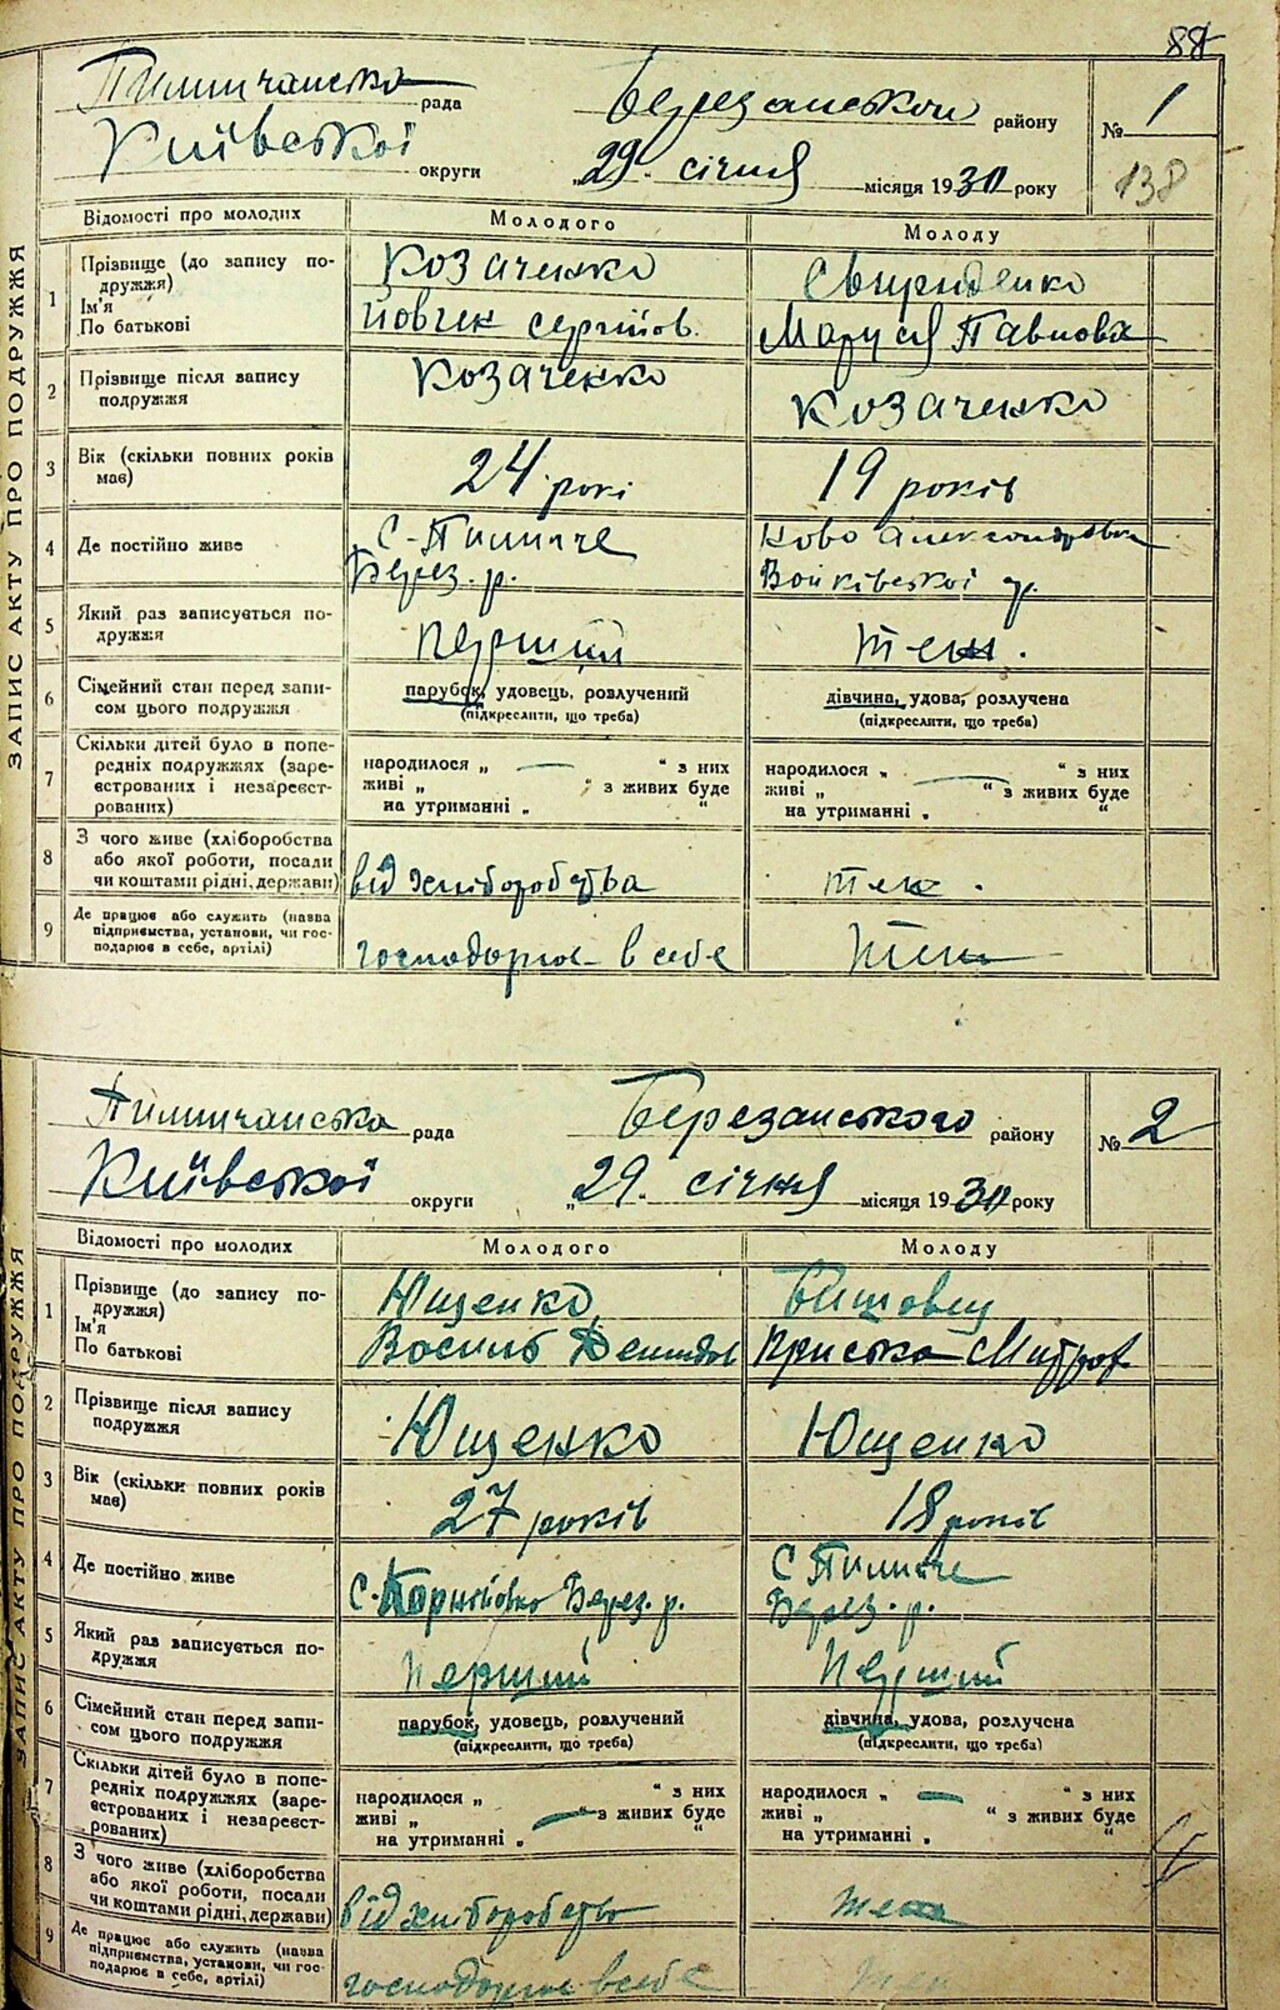 88
Пилипчанська рада Березанської району № 1
Київської округи „29" січня місяця 1930 року 138
ЗАПИС АКТУ ПРО ПОДРУЖЖЯ
Відомості про молодих Молодого Молоду
1 Прізвище (до запису по-
дружжя)
Ім'я
По батькові
Козаченко
Йовхим Сергійов.
Свириденко
Маруся Павловна
2 Прізвище після запису
подружжя
Козаченко
Козаченко
3 Вік (скільки повних років
має)
24 рокі
19 років
4 Де постійно живе
Берез. р.
Ново Александровка
5 Який раз записується по-
дружжя
перший
теж.
6 Сімейний стан перед запи-
сом цього подружжя
парубок, удовець, розлучений
(підкреслити, що треба)
дівчина, удова, розлучена
(підкреслити, що треба)
7 Скільки дітей було в попе-
редніх подружжях (заре-
єстрованих і незареєст-
рованих)
народилося „ — “ з них
живі „ “ з живих буде
на утриманні „ “
народилося „ — “ з них
живі „ “ з живих буде
на утриманні „ “
8 З чого живе (хліборобства
або якої роботи, посади
чи коштами рідні, держави)
від хліборобства
теж.
9 Де працює або служить (назва
підприємства, установи, чи гос-
подарює в себе, артілі)
господарює в себе
теж
Пилипчанська рада Березанського району № 2
Київської округи „29. січня місяця 1930 року
ЗАПИС АКТУ ПРО ПОДРУЖЖЯ
Відомості про молодих Молодого Молоду
1 Прізвище (до запису по-
дружжя)
Ім'я
По батькові
Ющенко
Василь Демидов
Приська Митроф
2 Прізвище після запису
подружжя
Ющенко
Ющенко
3 Вік (скільки повних років
має)
27 років
18 років
4 Де постійно живе
Берез. р.
Берез. р.
5 Який раз записується по-
дружжя
перший
перший
6 Сімейний стан перед запи-
сом цього подружжя
парубок, удовець, розлучений
(підкреслити, що треба)
дівчина, удова, розлучена
(підкреслити, що треба)
7 Скільки дітей було в попе-
редніх подружжях (заре-
єстрованих і незареєст-
рованих)
народилося „ “ з них
живі „ — “ з живих буде
на утриманні „ “
народилося „ — “ з них
живі „ “ з живих буде
на утриманні „ “
8 З чого живе (хліборобства
або якої роботи, посади
чи коштами рідні, держави)
від хліборобства
теж
9 Де працює або служить (назва
підприємства, установи, чи гос-
подарює в себе, артілі)
господарює в себе
теж